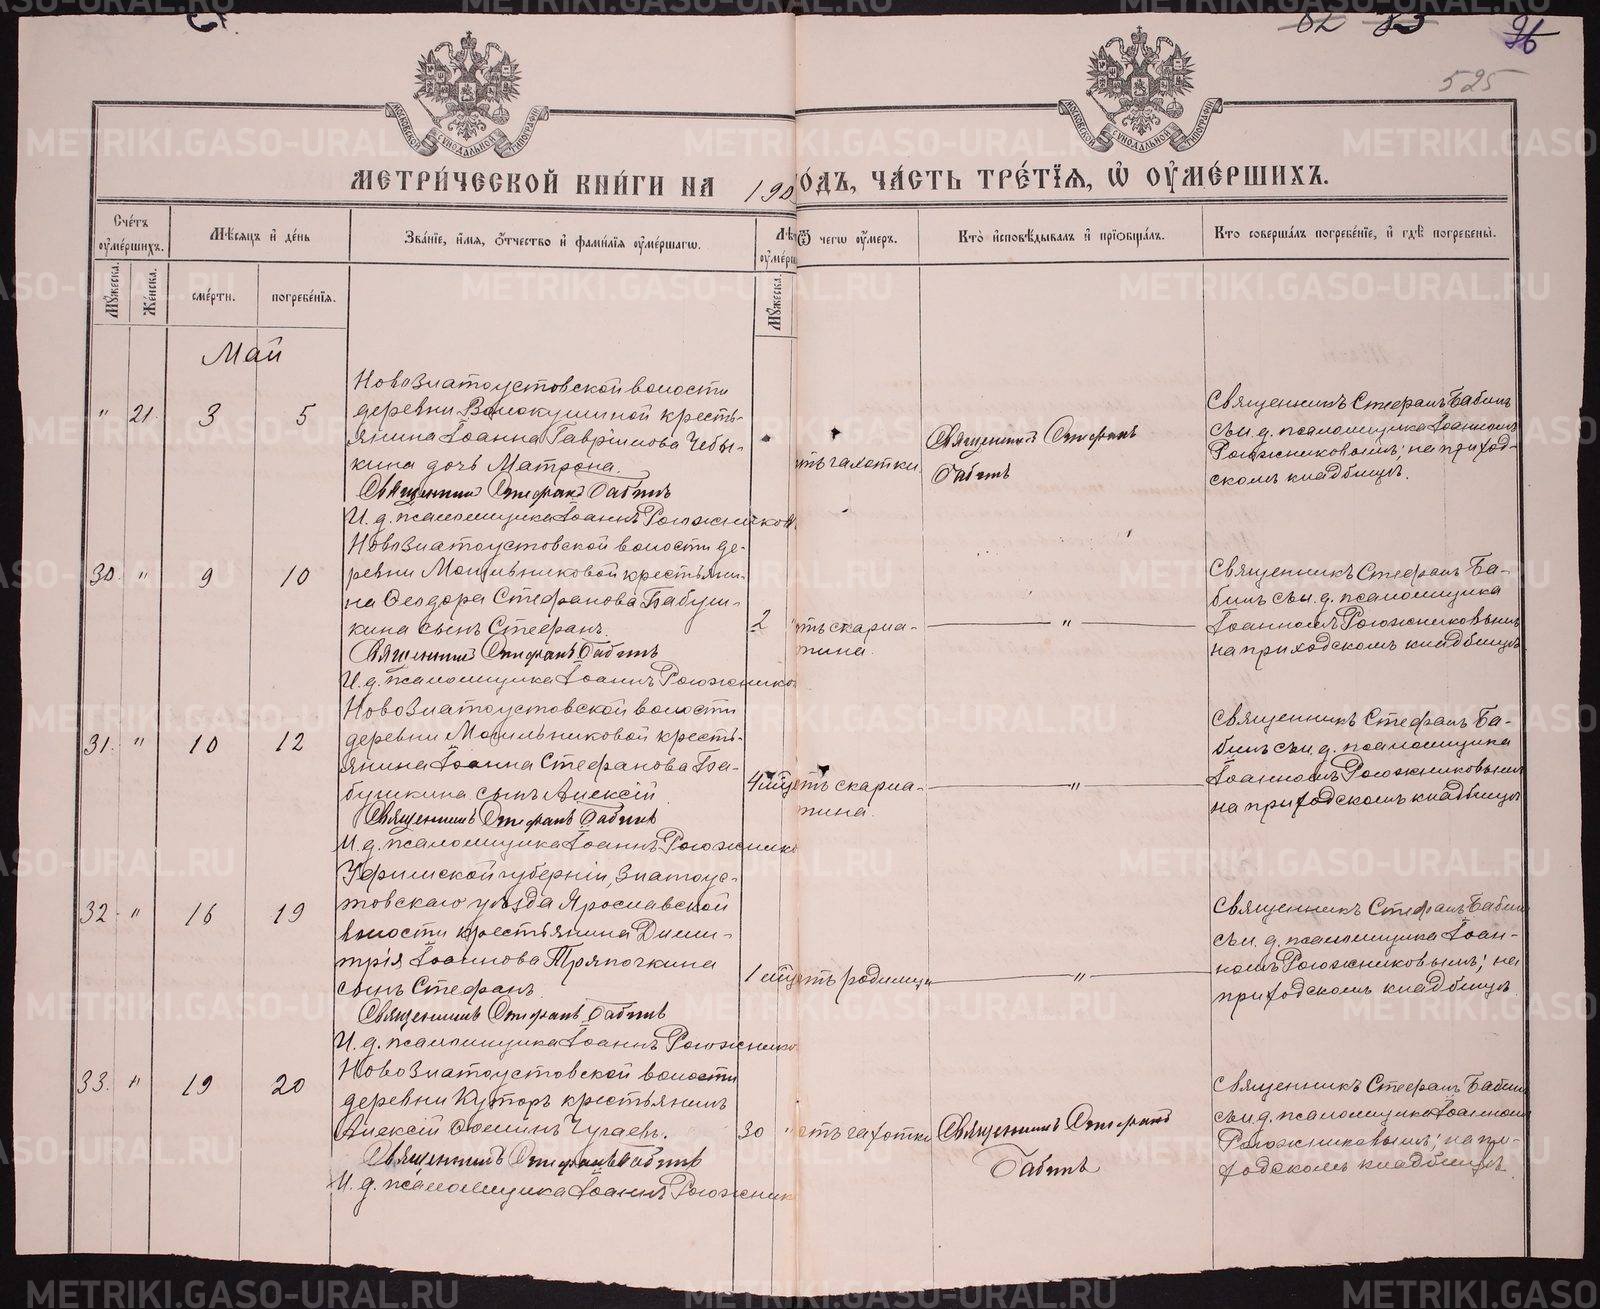 82 83 96
525
МОСКОВСКОЙ СУНОДАЛЬНОЙ ТИПОГРАФІИ
МОСКОВСКОЙ СУНОДАЛЬНОЙ ТИПОГРАФІИ
МЕТРИ́ЧЕСКОЙ КНИ́ГИ НА 190 ОДЪ, ЧА́СТЬ ТРЕ́ТІѦ, Ѡ ОУМЕ́РШИХЪ.
Сче́тъ оу҆ме́ршихъ.
Мꙋ́жеска.
Же́нска.
Мѣ́сѧцъ и҆ де́нь
сме́рти.
погребе́нїѧ.
Зва́нїе, и҆́мѧ, ѻ҆́тчество и҆ фами́лїѧ оу҆ме́ршагѡ.
Лѣ
оу҆ме́рш
Мꙋ́жеска.
Ѿ чегѡ̀ оу҆́меръ.
Кто̀ и҆сповѣ́дывалъ и҆ прїѡбща́лъ.
Кто̀ соверша́лъ погребе́нїе, и҆ гдѣ̀ погребены̀.
Май
" 21. 3 5
НовоЗлатоустовской волости
деревни Волокушиной кресть-
янина Іоанна Гавріилова Чебы-
кина дочь Матрона.
Священникъ Стефанъ Бабинъ
И. д. псаломщика Іоаннъ Рогожников
ть чахотки
Священникъ Стефанъ
Бабинъ
Священникъ Стефанъ Бабинъ
съ и. д. псаломщика Іоанномъ
Рогожниковымъ; на приход-
скомъ кладбищѣ.
30. " 9 10
НовоЗлатоустовской волости де-
ревни Могильниковой крестьяни-
на Ѳеодора Стефанова Бабуш-
кина сынъ Стефанъ.
Священникъ Стефанъ Бабинъ
И. д. псаломщика Іоаннъ Рогожнико
2
ть скарла-
тина.
"
Священникъ Стефанъ Ба-
бинъ съ и. д. псаломщика
Іоанномъ Рогожниковымъ
на приходскомъ кладбищѣ
31. " 10 12
НовоЗлатоустовской волости
деревни Могильниковой кресть-
янина Іоанна Стефанова Ба-
бушкина сынъ Алексій
Священникъ Стефанъ Бабинъ
И. д. псаломщика Іоаннъ Рогожнико
4 мѣц
ть скарла-
тина.
"
Священникъ Стефанъ Ба-
бинъ съ и. д. псаломщика
Іоанномъ Рогожниковымъ
на приходскомъ кладбищѣ
32. " 16 19
Уфимской губерніи, Златоус-
товскаго уѣзда Ярославской
волости крестьянина Дими-
трія Іоаннова Тряпочкина
сынъ Стефанъ
Священникъ Стефанъ Бабинъ
И. д. псаломщика Іоаннъ Рогожнико
1 мѣц
ть родимца
"
Священникъ Стефанъ Бабин
съ и. д. псаломщика Іоан-
номъ Рогожниковымъ; на
приходскомъ кладбищѣ
33. " 19 20
НовоЗлатоустовской волости
деревни Хуторъ крестьянинъ
Алексій Ѳоминъ Чугаевъ.
Священникъ Стефанъ Бабинъ
И. д. псаломщика Іоаннъ Рогожник
30 "
ть чахотки
Священникъ Стефанъ
Бабинъ
Священникъ Стефанъ Бабинъ
съ и. д. псаломщика Іоанномъ
Рогожниковымъ; на при-
ходскомъ кладбищѣ.
METRIKI.GASO-URAL.RU